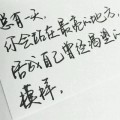 总有一天，
你会站在最亮的地方，
活成自己曾经渴望的
模样．